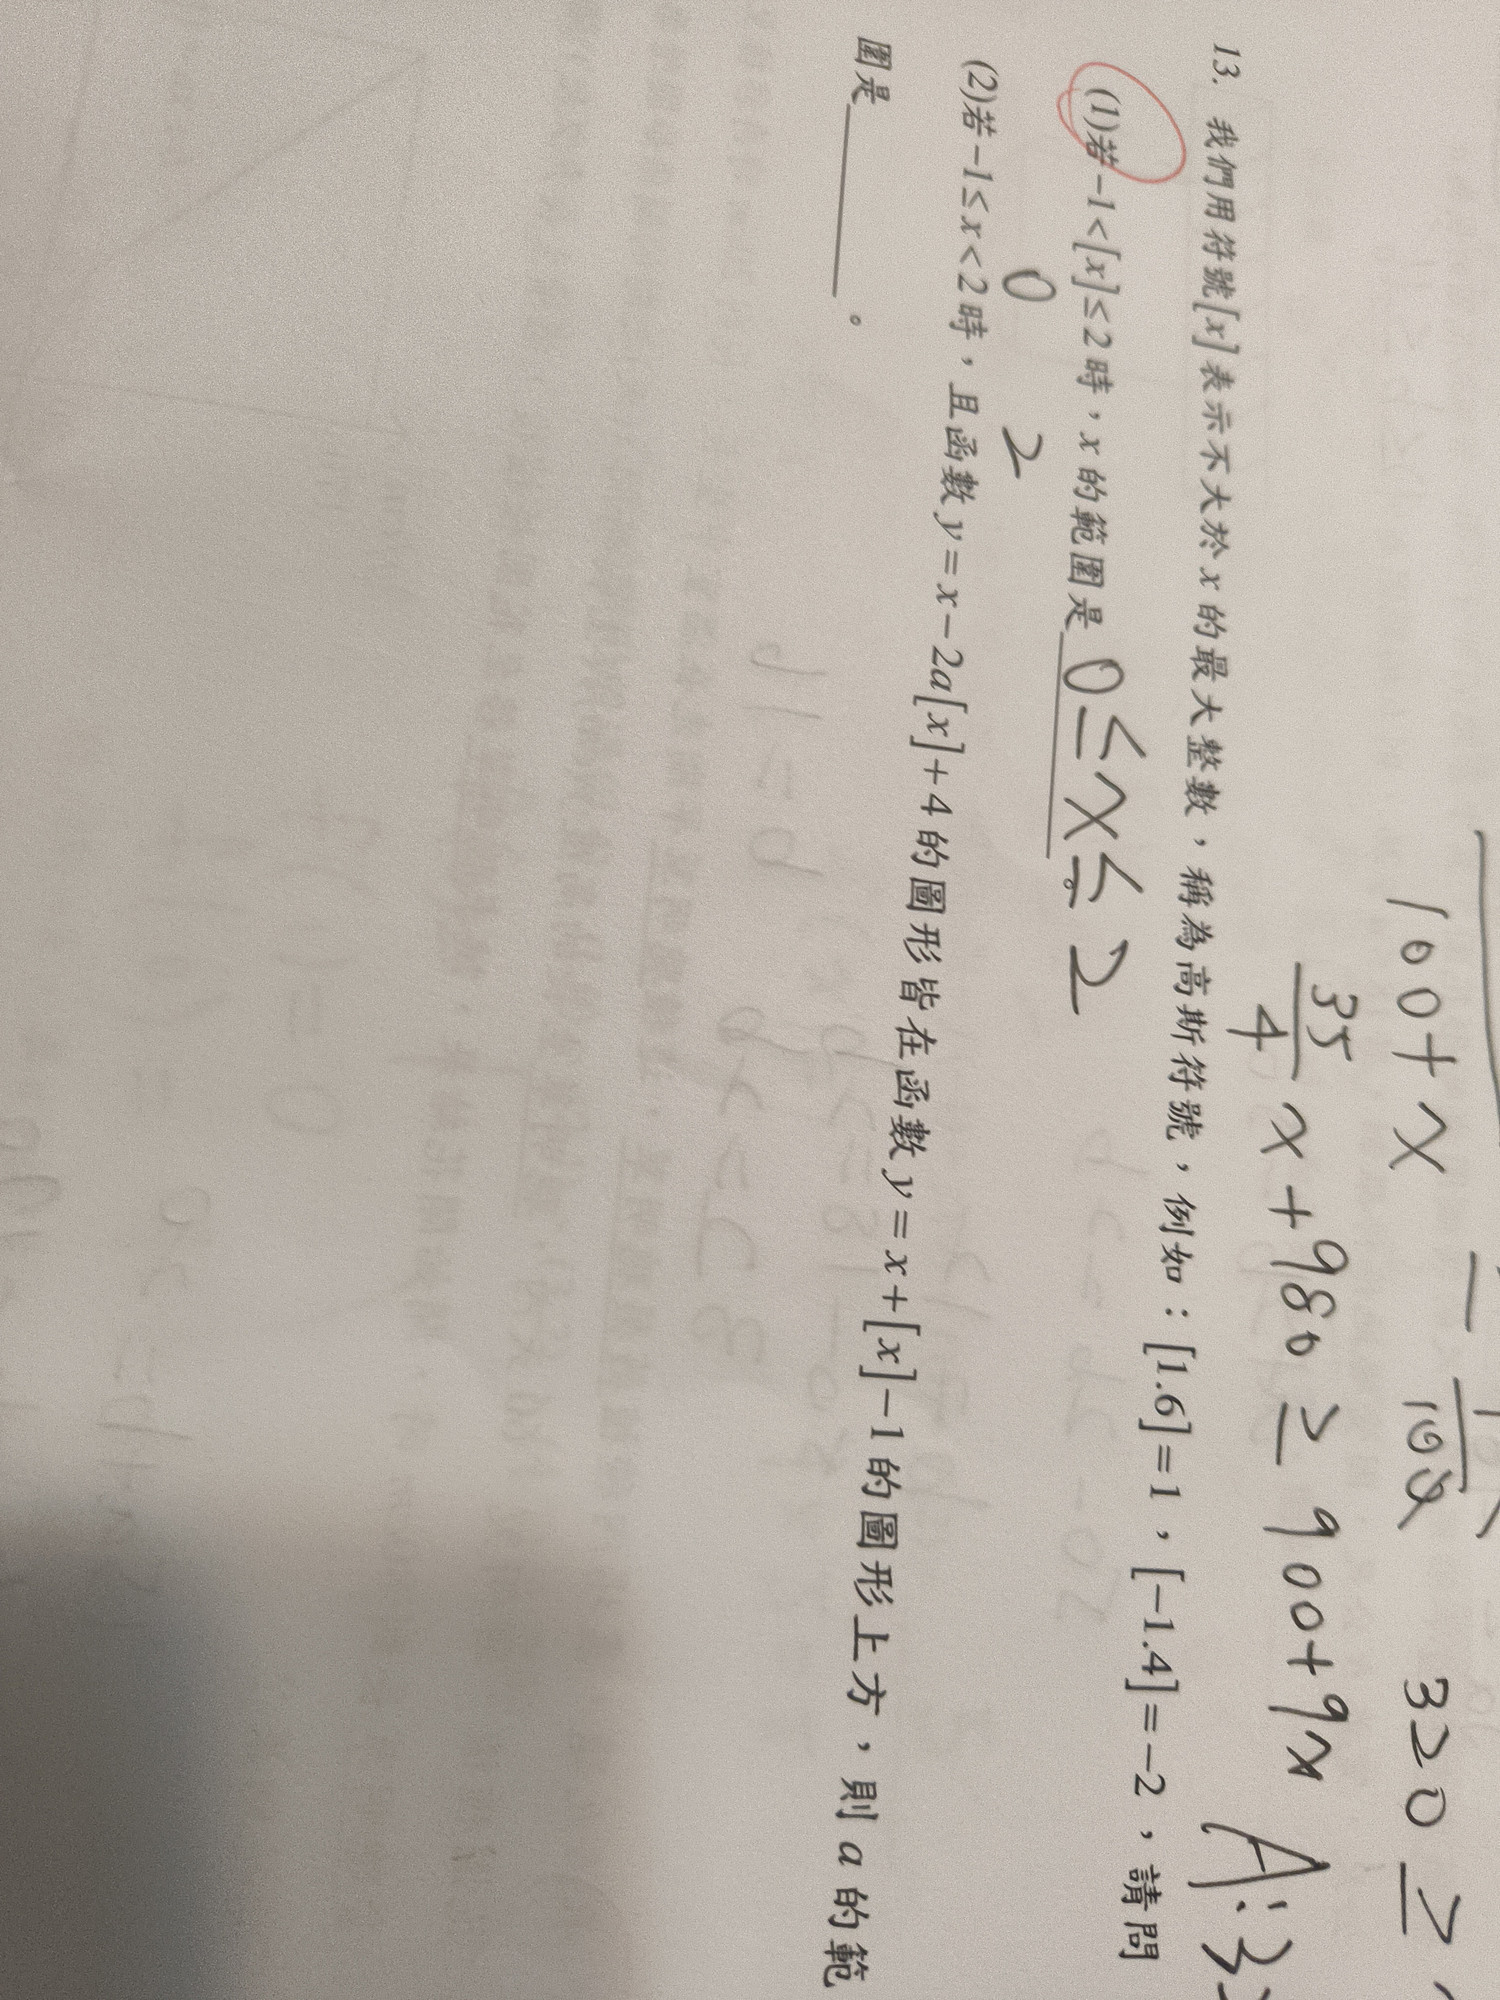 100+x
100
320 ≥
35/4 x + 980 ≥ 900+9x
A:3
13. 我們用符號[x]表示不大於x的最大整數，稱為高斯符號，例如：[1.6]=1，[−1.4]=−2，請問
(1)若−1<[x]≤2時，x的範圍是0≤x≤2。
0 2
(2)若−1≤x<2時，且函數y=x−2a[x]+4的圖形皆在函數y=x+[x]−1的圖形上方，則a的範
圍是______。